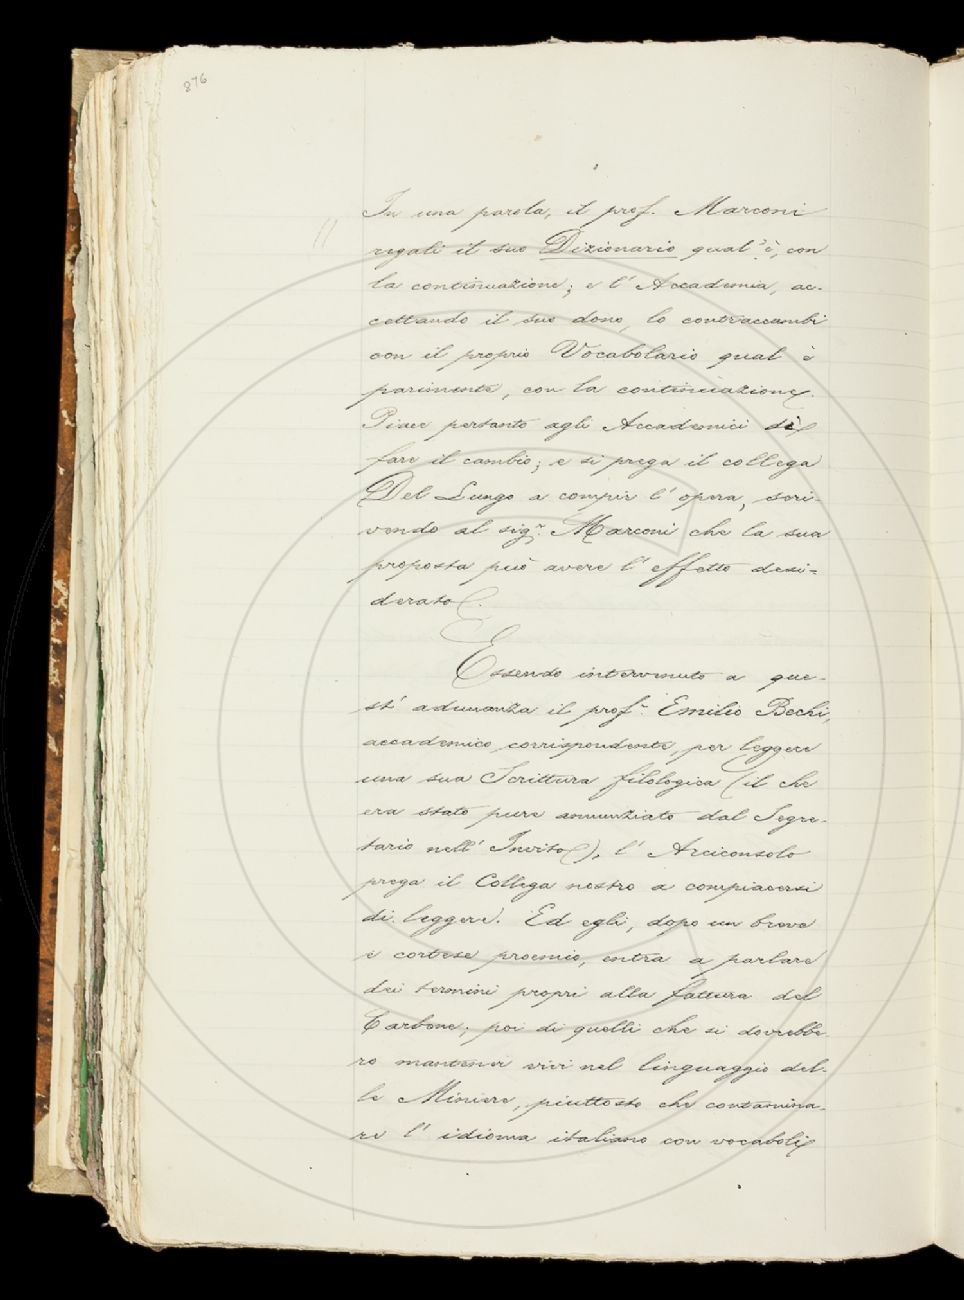 876
In una parola, il prof. Marconi
regali il suo Dizionario qual'è, con
la continuazione; e l'Accademia, ac-
cettando il suo dono, lo contraccambi
con il proprio Vocabolario qual è
parimente, con la continuazione.
Piace pertanto agli Accademici di
fare il cambio; e si prega il collega
Del Lungo a compir l'opera, scri-
vendo al sigr. Marconi che la sua
proposta può avere l'effetto desi-
derato.
Essendo intervenuto a que-
st'adunanza il prof. Emilio Bechi,
accademico corrispondente, per leggere
una sua Scrittura filologica (il che
era stato pure annunziato dal Segre-
tario nell'Invito), l'Arciconsolo
prega il Collega nostro a compiacersi
di leggere. Ed egli, dopo un breve
e cortese proemio, entra a parlare
dei termini propri alla fattura del
Carbone; poi di quelli che si dovrebbe-
ro mantener vivi nel linguaggio del-
le Miniere, piuttosto che contamina-
re l'idioma italiano con vocaboli